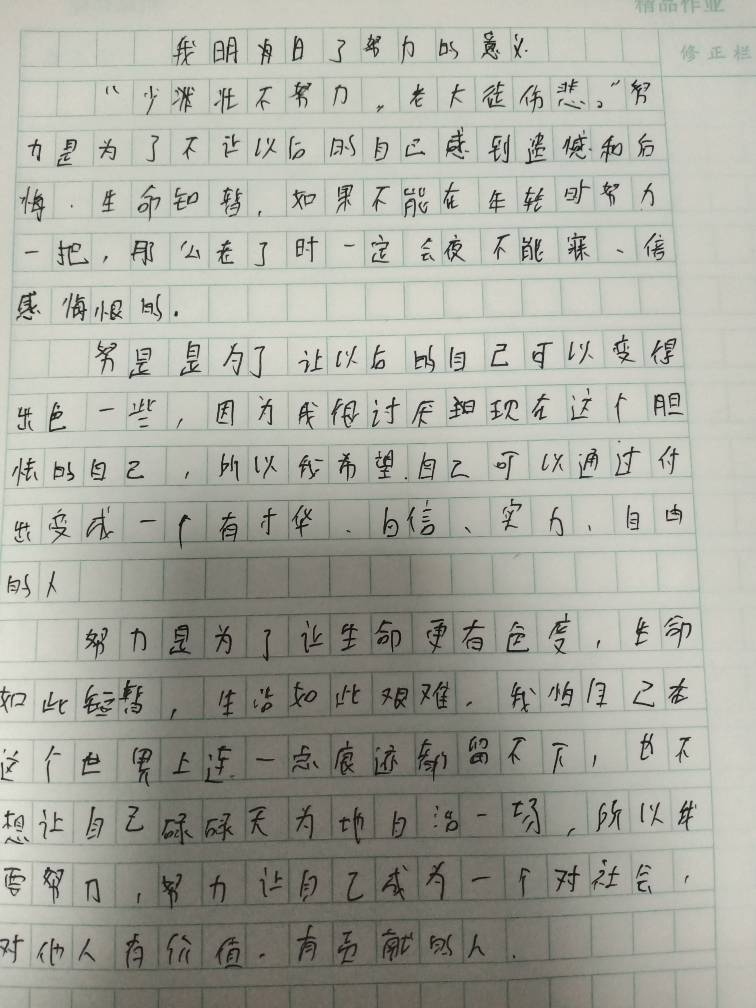 精品作业
修正栏
我明白了努力的意义
“少壮不努力，老大徒伤悲。”努
力是为了不让以后的自己感到遗憾和后
悔．生命短暂，如果不能在年轻时努力
一把，那么老了时一定会夜不能寐、倍
感悔恨的．
努是是为了让以后的自己可以变得
出色一些，因为我很讨厌现在这个胆
怯的自己，所以我希望自己可以通过付
出变成一个有才华、自信、实力、自由
的人
努力是为了让生命更有色度，生命
如此短暂，生活如此艰难．我怕自己在
这个世界上连一点痕迹都留不下，也不
想让自己碌碌天为地白活一场，所以我
要努力，努力让自己成为一个对社会，
对他人有价值．有贡献的人．